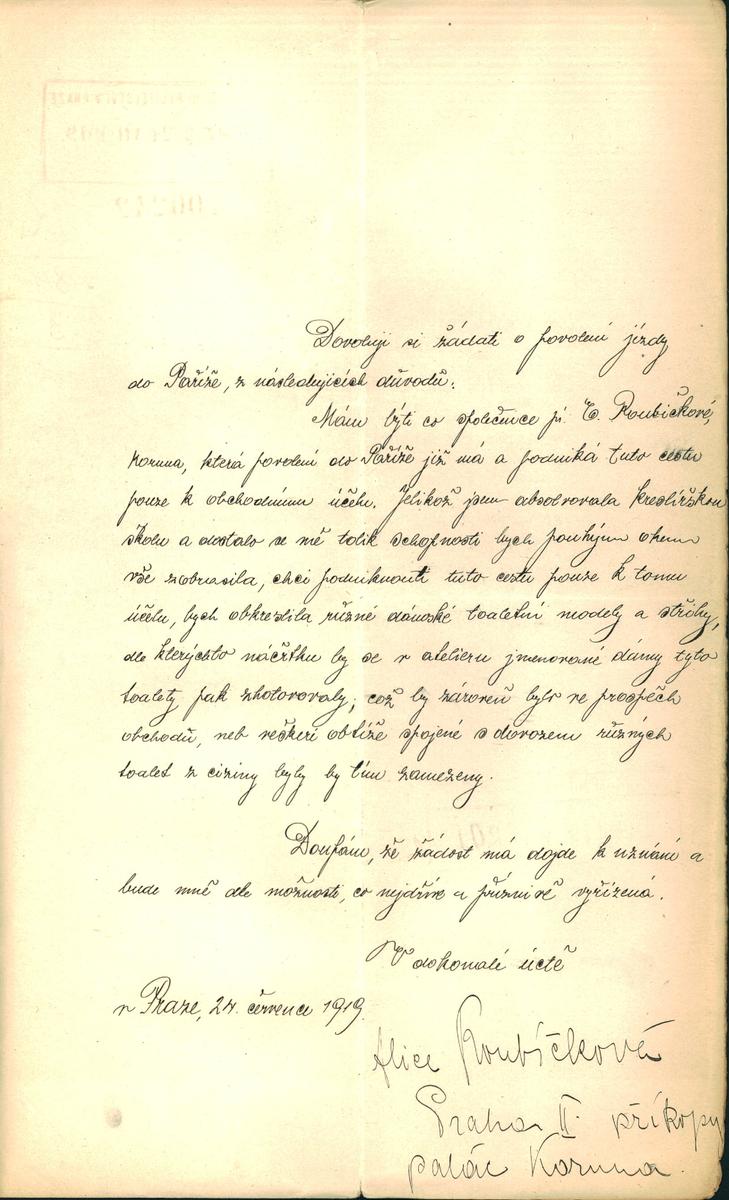 Dovoluji si žádati o povolení jízdy
do Paříže, z následujících důvodů:
Mám býti co společnice pí. E. Roubíčkové,
Koruna, která povolení do Paříže již má a podniká tuto cestu
pouze k obchodnímu účelu. Jelikož jsem absolvovala kreslířskou
školu a dostalo se mě tolik schopnosti bych pouhým okem
vše zobrazila, chci podniknouti tuto cestu pouze k tomu
účelu, bych obkreslila různé dámské toaletní modely a střihy,
dle kterýchto náčrtku by se v atelieru jmenované dámy tyto
toalety pak zhotovovaly; což by zároveň bylo ve prospěch
obchodů, neb veškeré obtíže spojené s dovozem různých
toalet z ciziny byly by tím zamezeny.
Doufám, že žádost má dojde k uznání a
bude mně dle možnosti, co nejdřív a příznivě vyřízená.
V dokonalé úctě
v Praze, 24. července 1919.
Alice Roubíčková
Praha II. příkopy
palác Koruna.